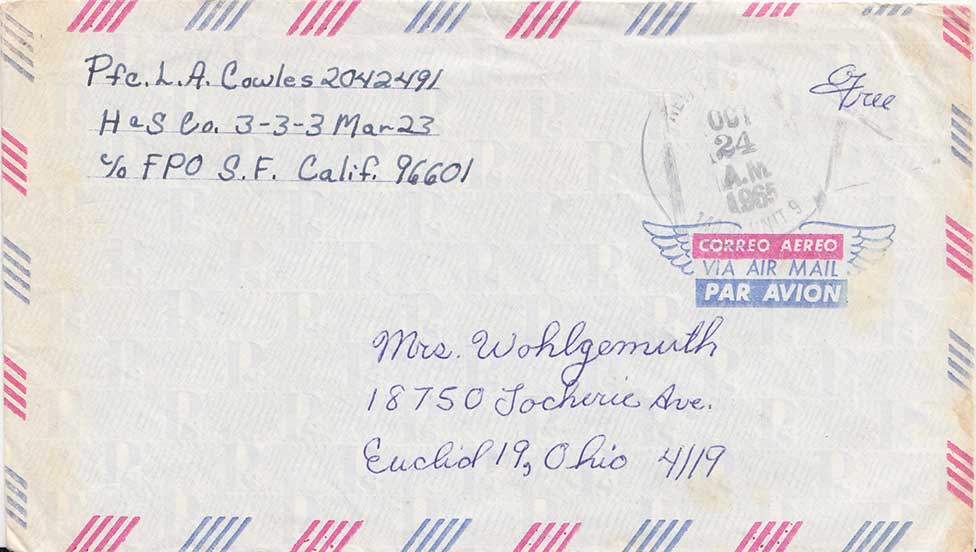 Pfc. L.A. Cowles 2042491
H & S Co. 3-3-3 Mar 23
c/o FPO S.F. Calif. 96601
Free
OCT
24
A.M
1965
UNIT 9
CORREO AEREO
VIA AIR MAIL
PAR AVION
Mrs. Wohlgemuth
18750 Locherie Ave.
Euclid 19, Ohio 4119